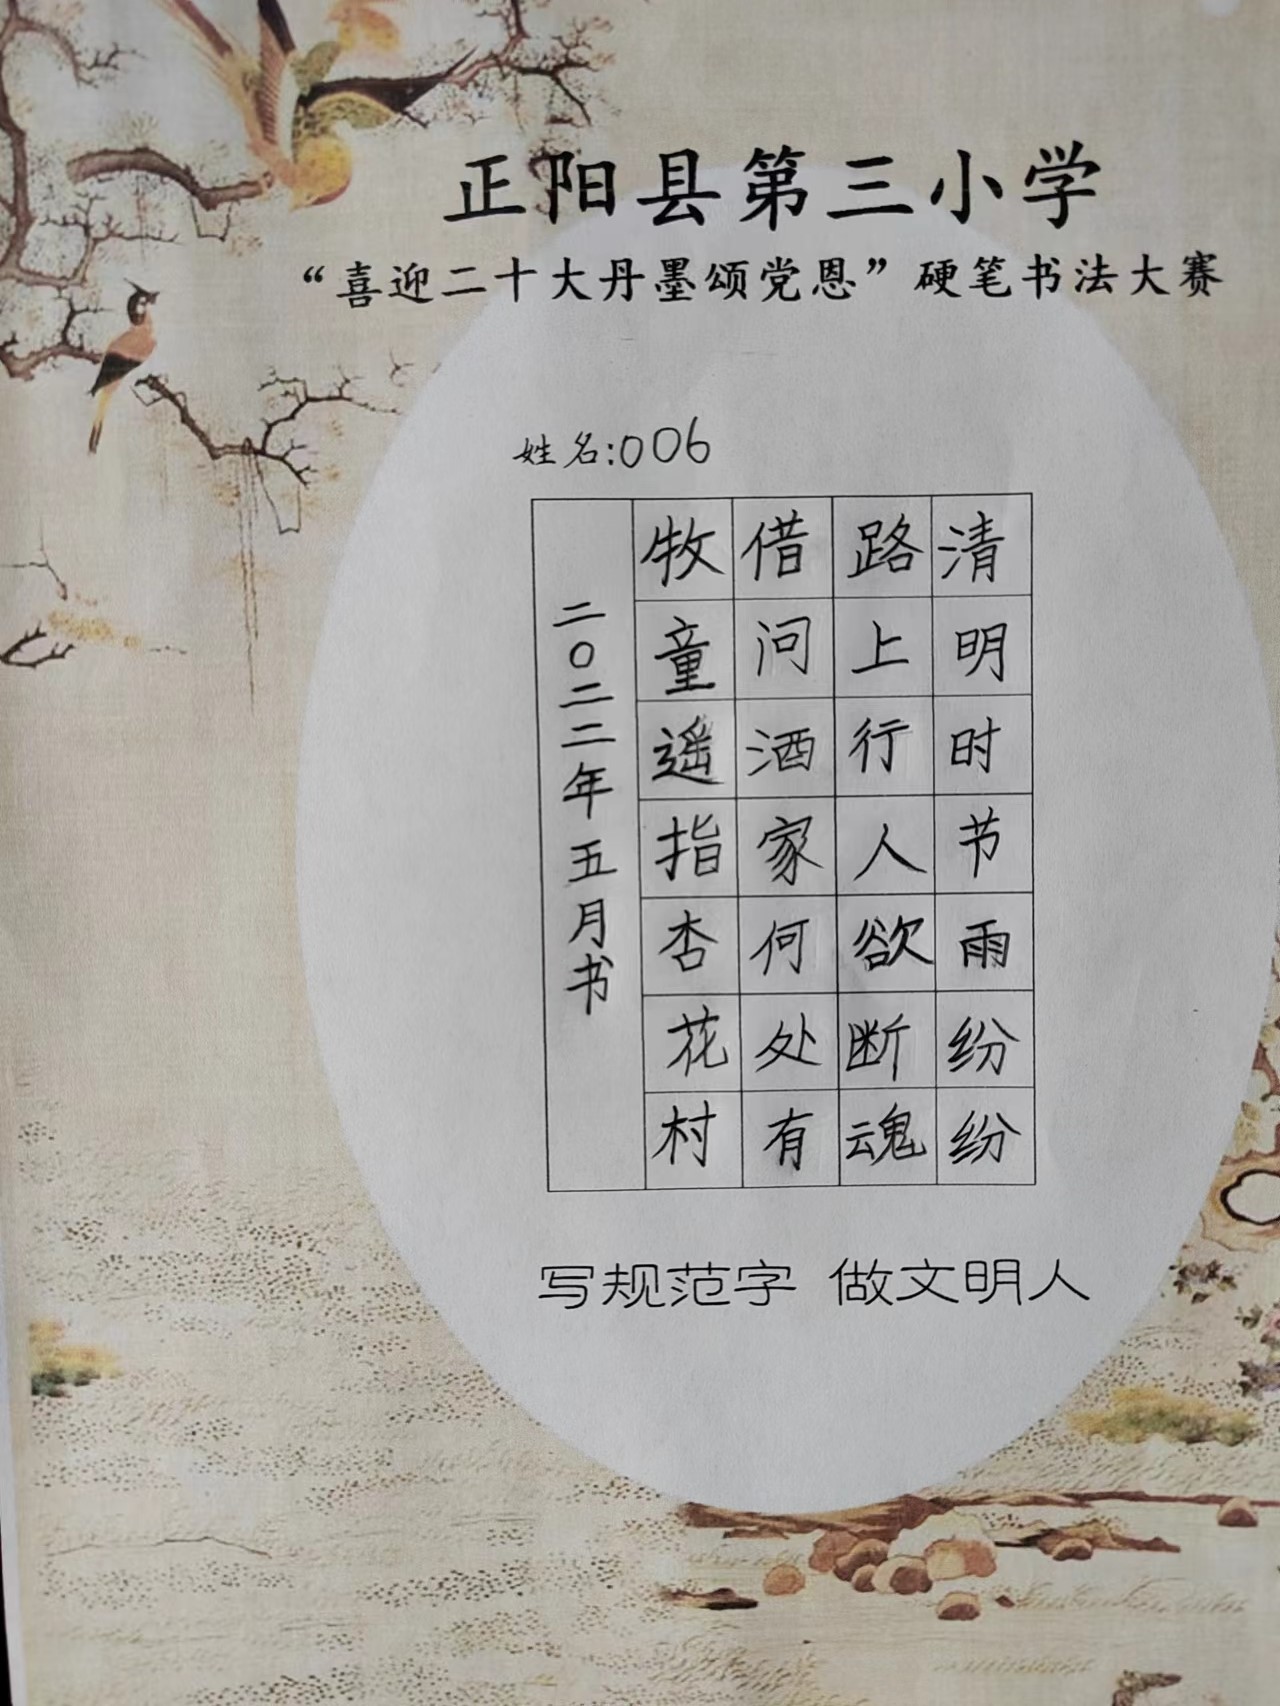 正阳县第三小学
“喜迎二十大丹墨颂党恩”硬笔书法大赛
姓名:006
清明时节雨纷纷
路上行人欲断魂
借问酒家何处有
牧童遥指杏花村
二〇二二年五月书
写规范字 做文明人